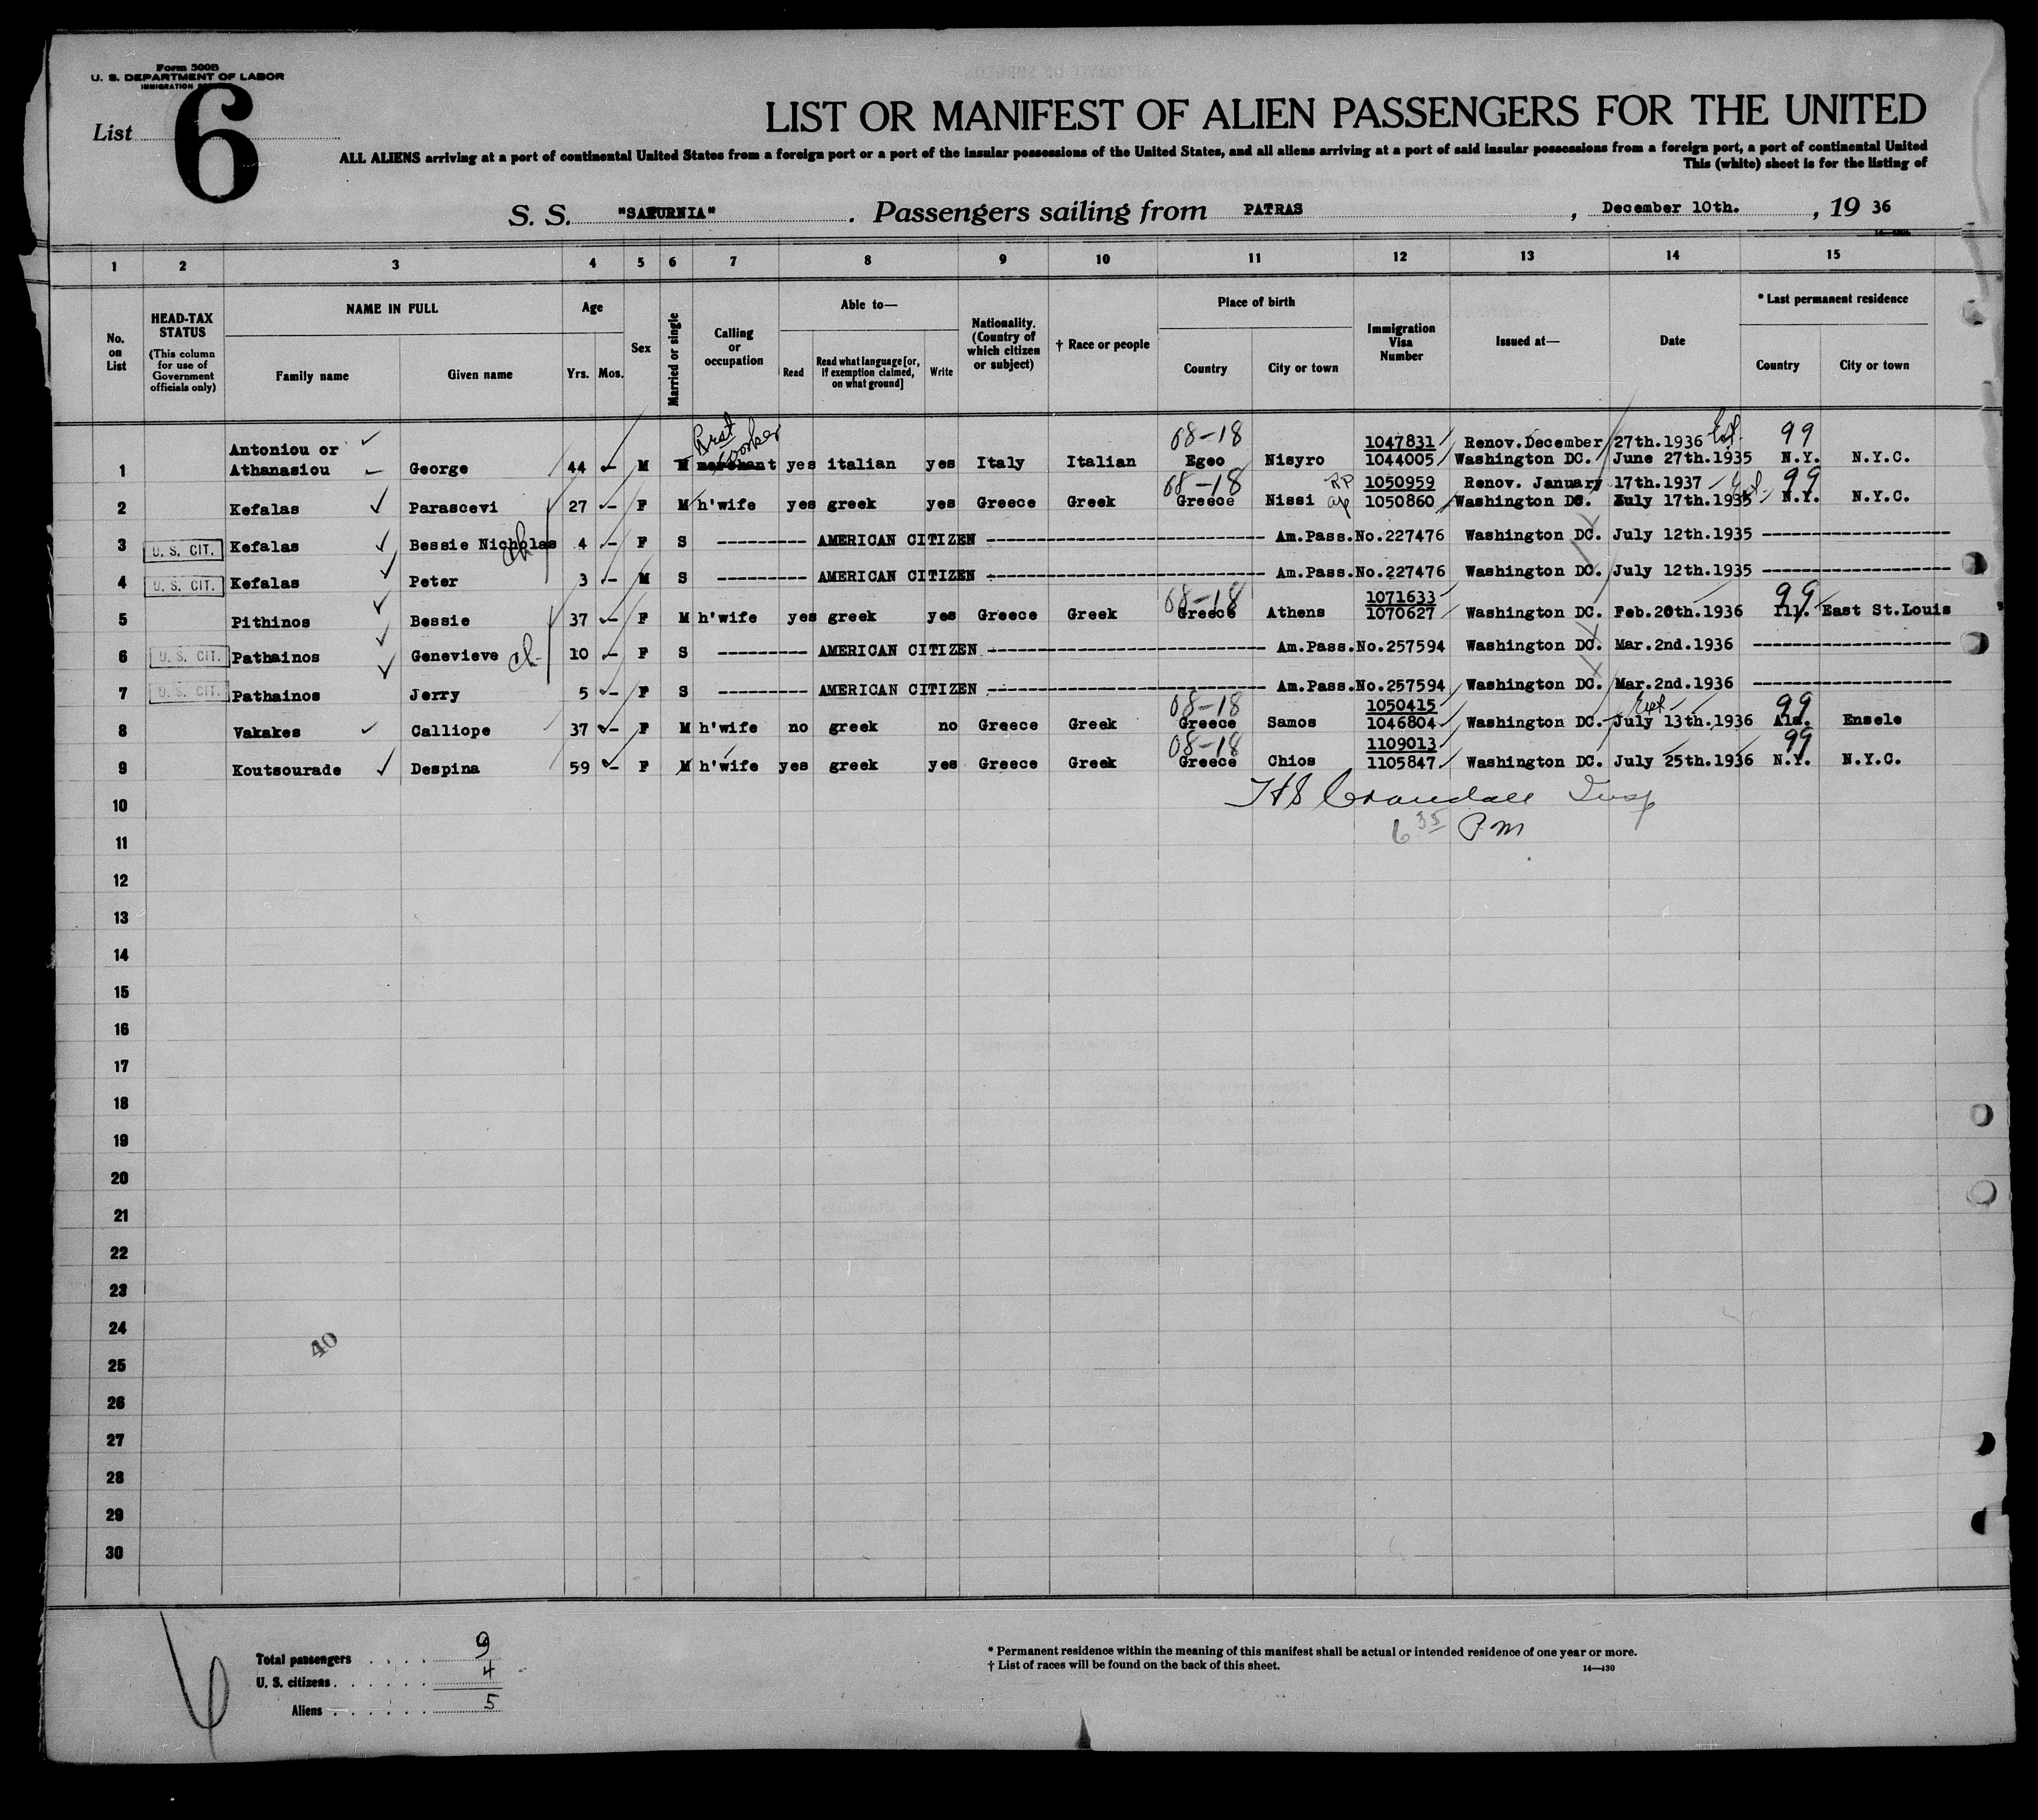 Form 500B
U. S. DEPARTMENT OF LABOR
IMMIGRATION
List 6
LIST OR MANIFEST OF ALIEN PASSENGERS FOR THE UNITED
ALL ALIENS arriving at a port of continental United States from a foreign port or a port of the insular possessions of the United States, and all aliens arriving at a port of said insular possessions from a foreign port, a port of continental United
This (white) sheet is for the listing of
S. S. "SATURNIA". Passengers sailing from PATRAS, December 10th., 19 36
1 2 3 4 5 6 7 8 9 10 11 12 13 14 15
No. on List
HEAD-TAX STATUS (This column for use of Government officials only)
NAME IN FULL Family name Given name
Age Yrs. Mos.
Sex
Married or single
Calling or occupation
Able to— Read Read what language [or, if exemption claimed, on what ground] Write
Nationality. (Country of which citizen or subject)
† Race or people
Place of birth Country City or town
Immigration Visa Number
Issued at—
Date
* Last permanent residence Country City or town
08-18 99
Antoniou or 1047831 Renov. December 27th.1936
1 Athanasiou George 44 M M merchant yes italian yes Italy Italian Egeo Nisyro 1044005 Washington DC. June 27th.1935 N.Y. N.Y.C.
08-18 RP 1050959 Renov. January 17th.1937 99
2 Kefalas Parascevi 27 F M h'wife yes greek yes Greece Greek Greece Nissi 1050860 Washington DC. July 17th.1935 N.Y. N.Y.C.
3 U. S. CIT. Kefalas Bessie Nicholas 4 F S --------- AMERICAN CITIZEN --------- Am.Pass.No.227476 Washington DC. July 12th.1935 ---------
4 U. S. CIT. Kefalas Peter 3 M S --------- AMERICAN CITIZEN --------- Am.Pass.No.227476 Washington DC. July 12th.1935 ---------
08-18 1071633 99
5 Pithinos Bessie 37 F M h'wife yes greek yes Greece Greek Greece Athens 1070627 Washington DC. Feb.20th.1936 Ill. East St.Louis
6 U. S. CIT. Pathainos Genevieve 10 F S --------- AMERICAN CITIZEN --------- Am.Pass.No.257594 Washington DC. Mar.2nd.1936 ---------
7 U. S. CIT. Pathainos Jerry 5 F S --------- AMERICAN CITIZEN --------- Am.Pass.No.257594 Washington DC. Mar.2nd.1936 ---------
08-18 1050415 99
8 Vakakes Calliope 37 F M h'wife no greek no Greece Greek Greece Samos 1046804 Washington DC. July 13th.1936 Ala. Ensele
08-18 1109013 99
9 Koutsourade Despina 59 F M h'wife yes greek yes Greece Greek Greece Chios 1105847 Washington DC. July 25th.1936 N.Y. N.Y.C.
10 HS Crandall Insp
11 6 35 P.M
12
13
14
15
16
17
18
19
20
21
22
23
24
40
25
26
27
28
29
30
Total passengers . . . . 9
U. S. citizens . . . . . . 4
Aliens . . . . . . 5
* Permanent residence within the meaning of this manifest shall be actual or intended residence of one year or more.
† List of races will be found on the back of this sheet.
14—430